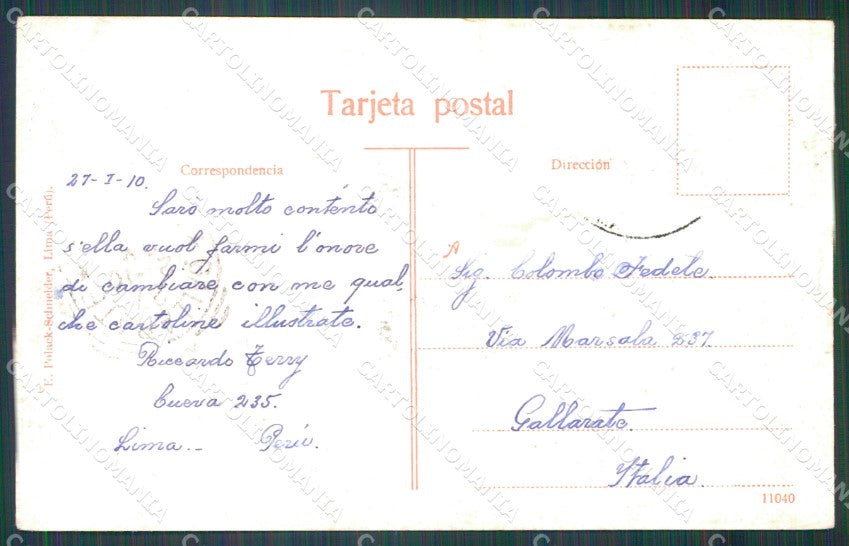 Tarjeta postal
Correspondencia
27-I-10.
Saró molto conténto
s'ella vuol farmi l'onore
di cambiare con me qual-
che cartoline illustrate.
Riccardo Terry
Cueva 235.
Lima.- Perú.
E. Polack-Schneider, Lima (Perú).
Dirección
A
Sig. Colombo Fedele
Via Marsala 237
Gallarate.
Italia.
11040
CARTOLINOMANIA